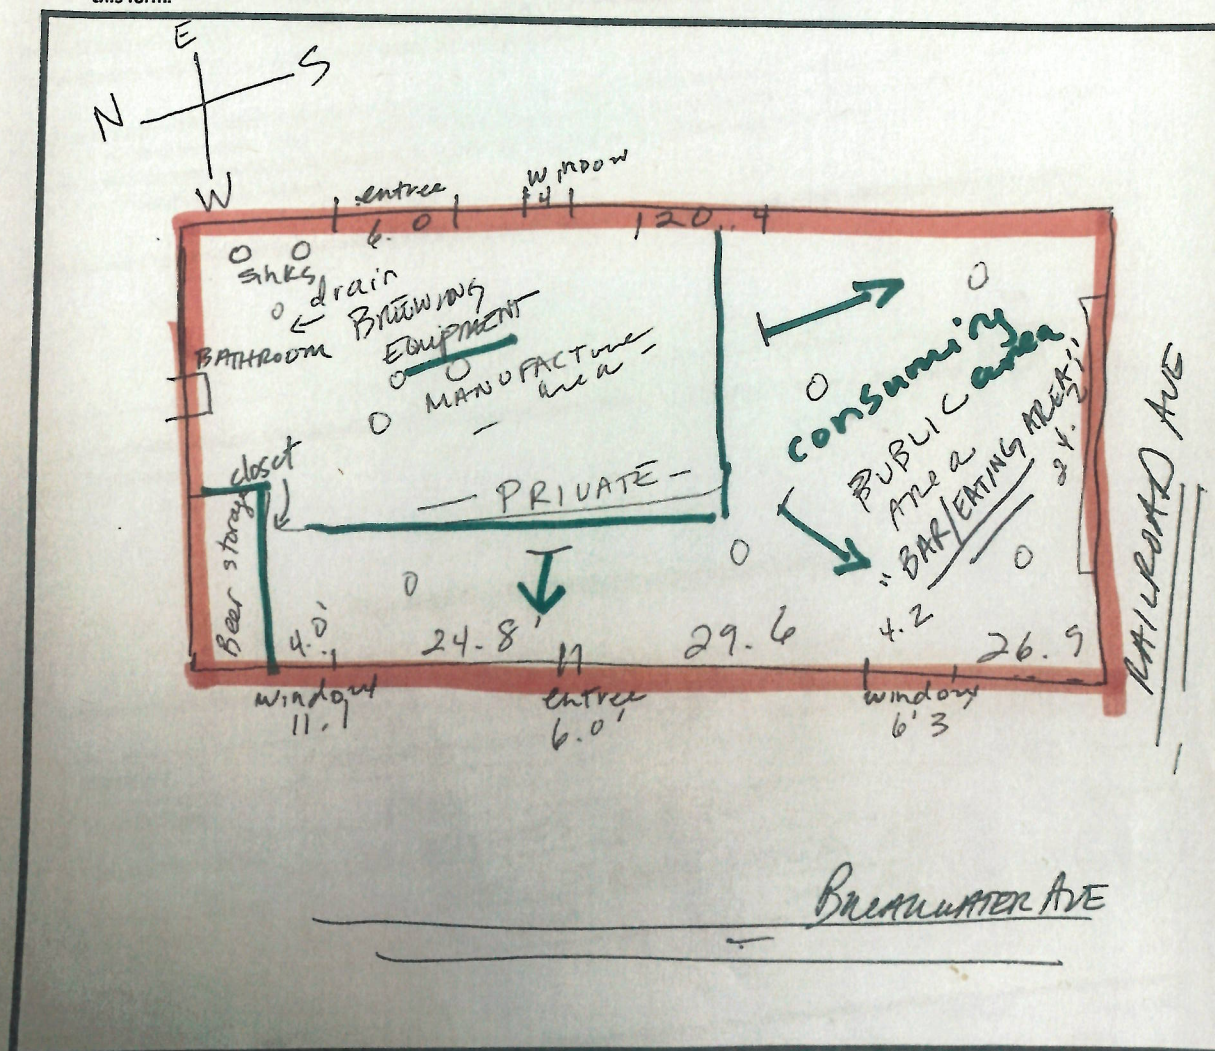 this form.
E
S
N
W
entree
6.0
window
4
120.4
sinks
drain
BREWING
EQUIPMENT
BATHROOM
MANUFACTURE
area
closet
Beer storage
- PRIVATE -
consuming
area
PUBLIC
AREA
"BAR/EATING AREA"
RAILROAD AVE
4.0'
24.8'
29.6
4.2
26.9
window
11.1
entree
6.0'
window
6'3
BREAKWATER AVE